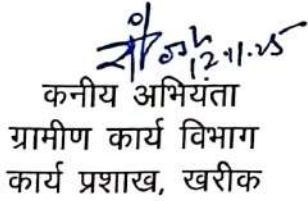 12.11.25
कनीय अभियंता
ग्रामीण कार्य विभाग
कार्य प्रशाख, खरीक